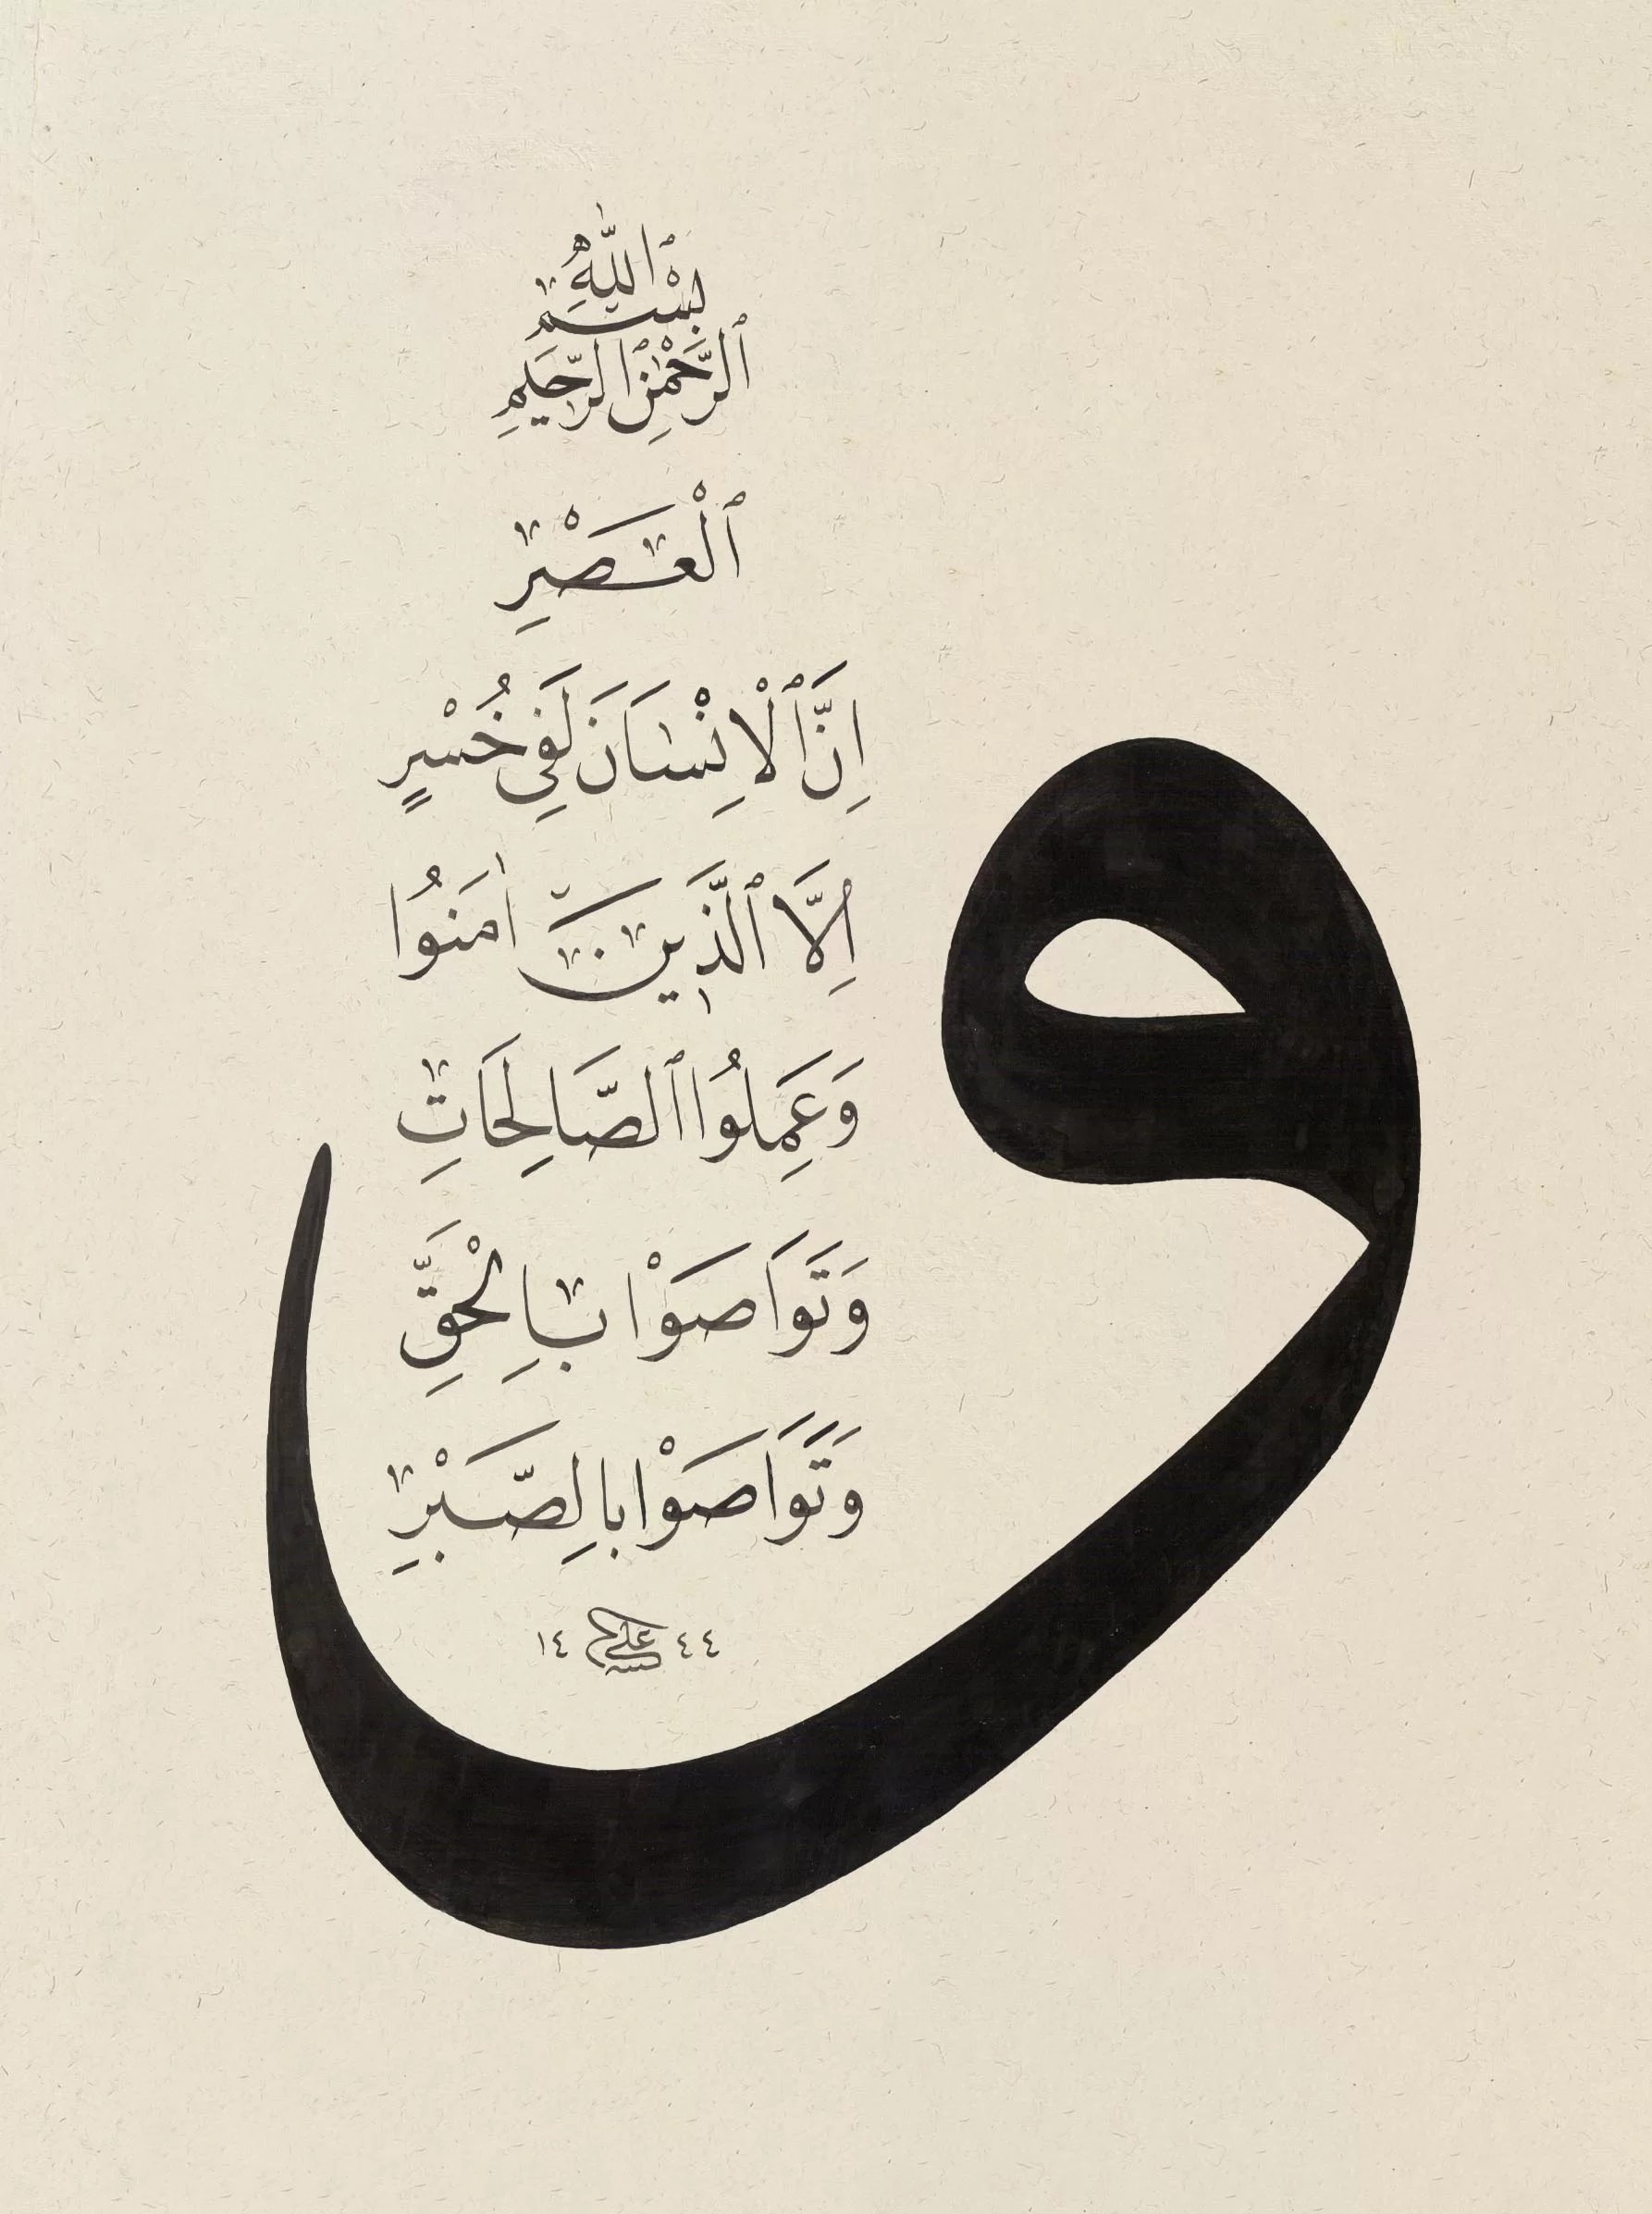 بِسْمِ ٱللّٰهِ
ٱلرَّحْمٰنِ ٱلرَّحِيمِ
و
ٱلْعَصْرِ
اِنَّ ٱلْاِنْسَانَ لَفِي خُسْرٍ
اِلَّا ٱلَّذِينَ اٰمَنُوا
وَعَمِلُوا ٱلصَّالِحَاتِ
وَتَوَاصَوْا بِالْحَقِّ
وَتَوَاصَوْا بِالصَّبْرِ
١٤ علي ٤٤